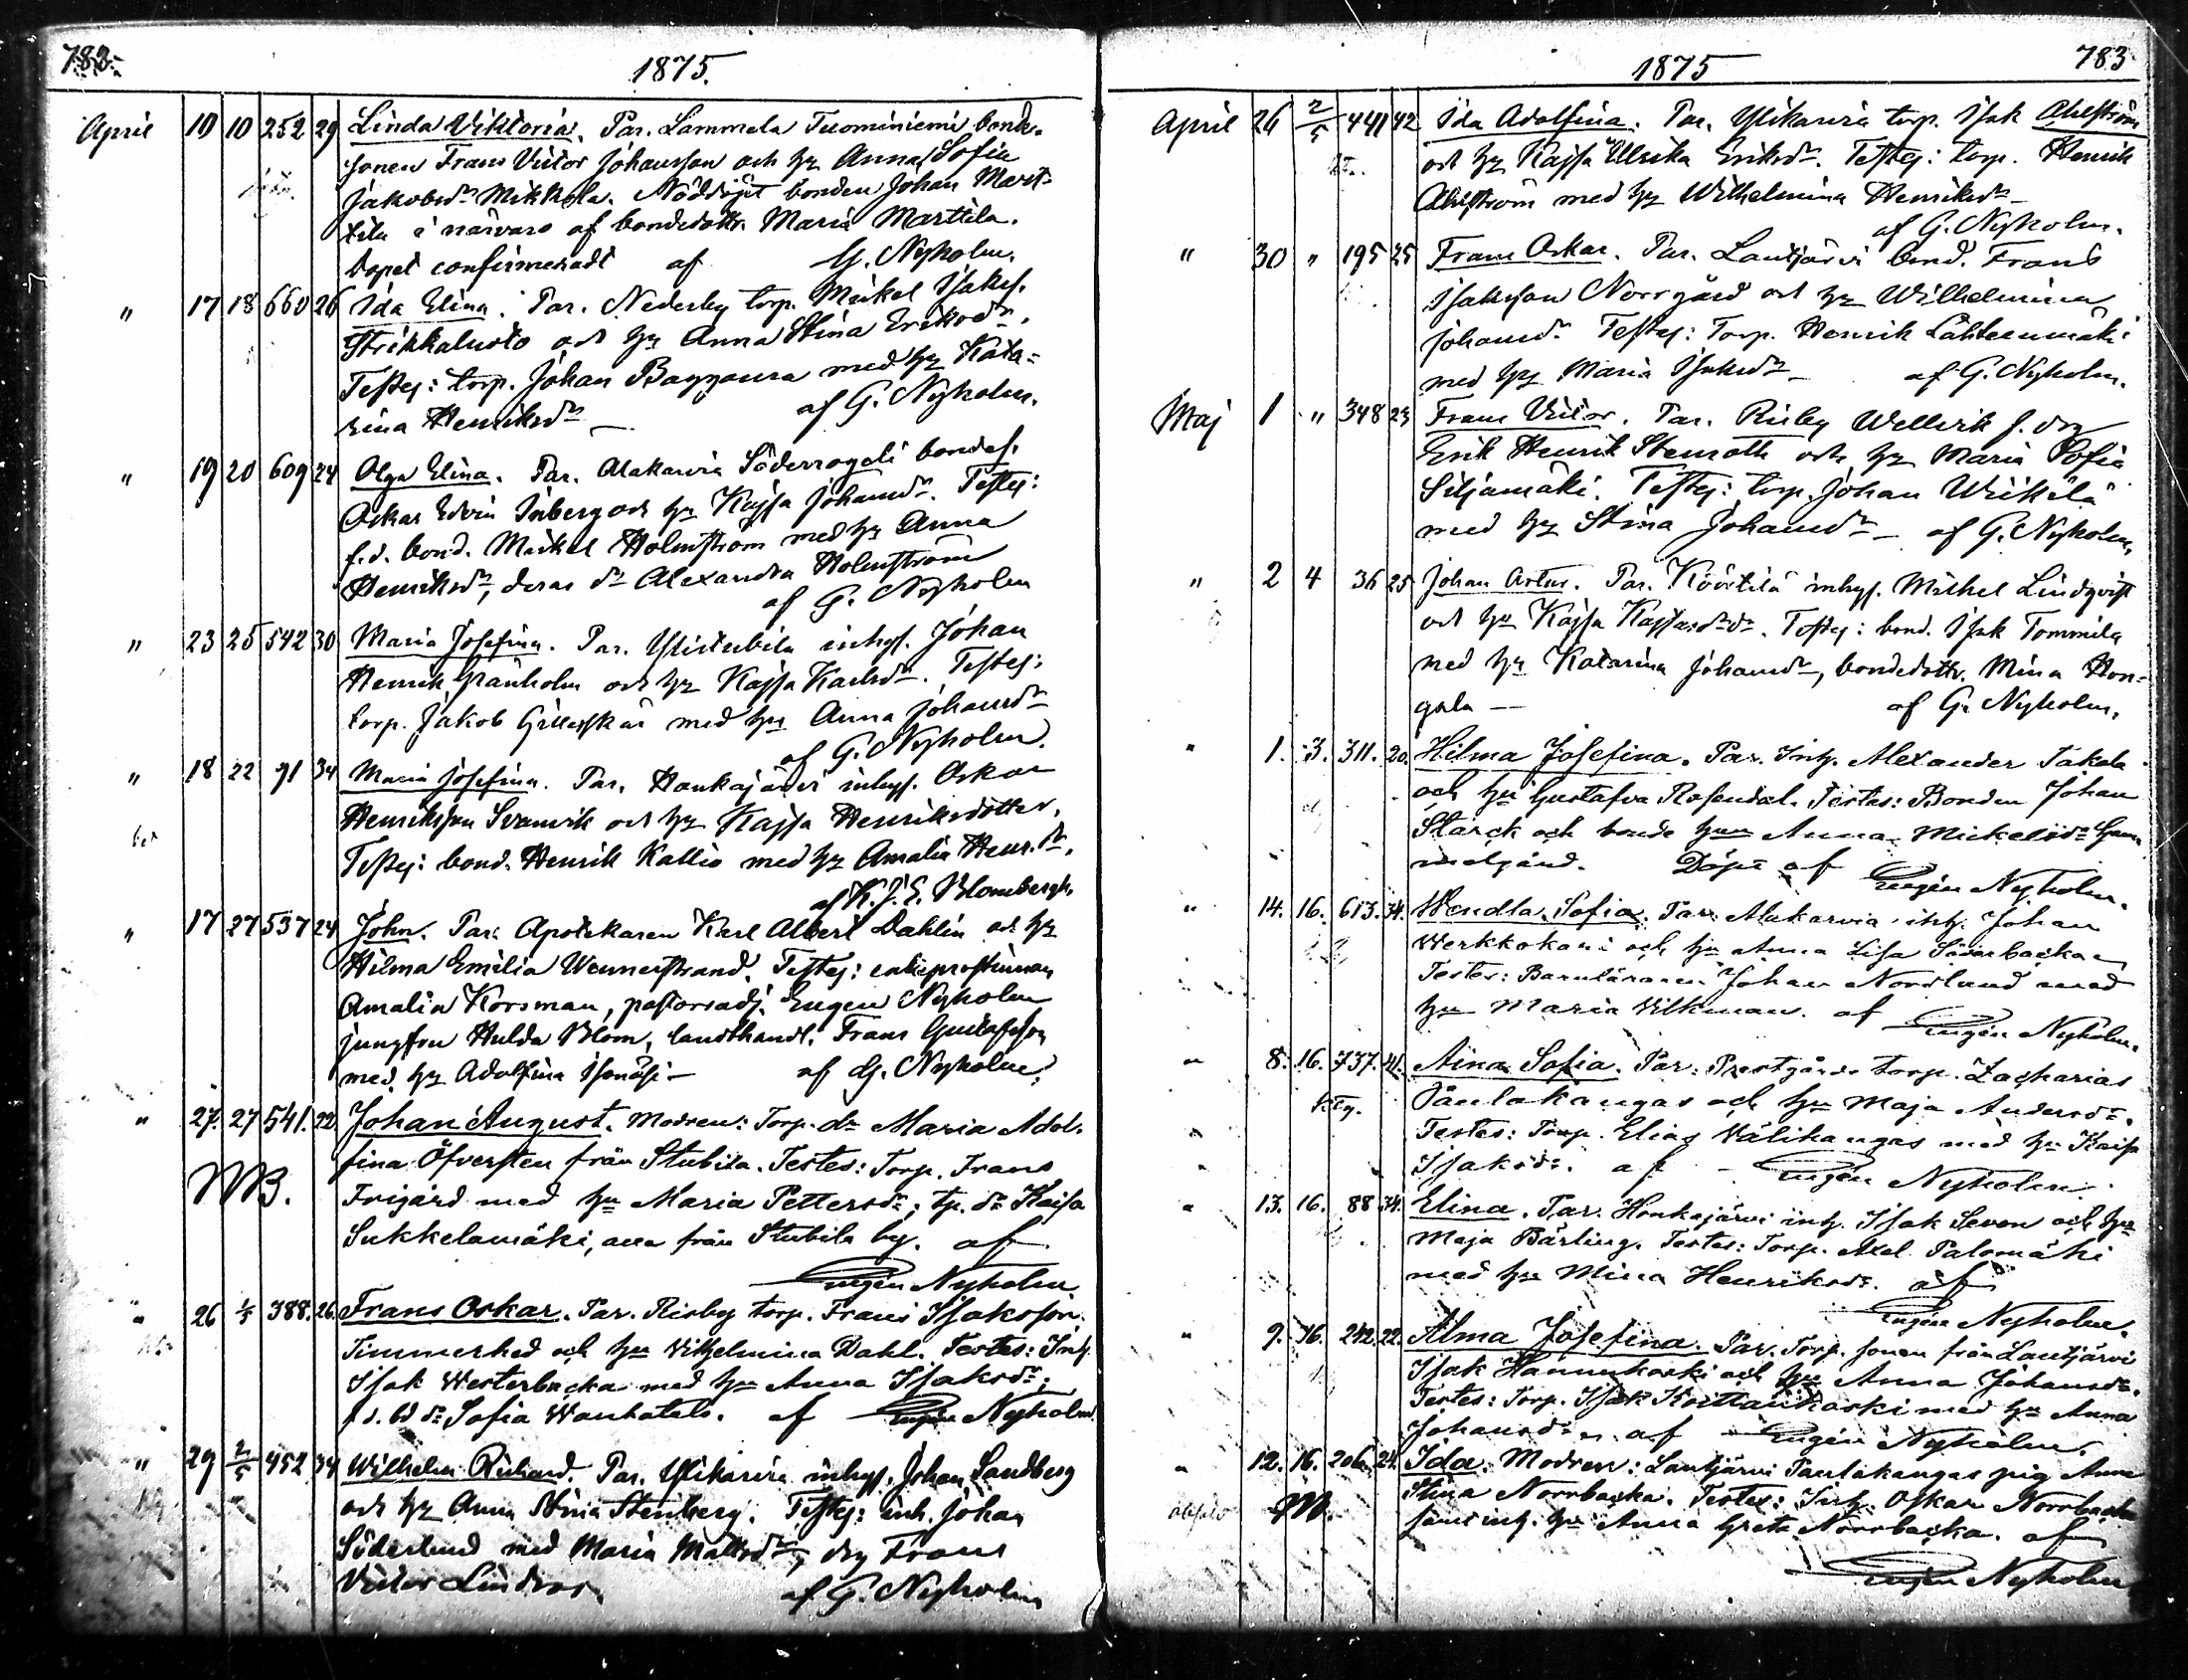 782.
1875.
April 10 10 252 29 Linda Viktoria. Par. Lammela Tuominiemi bonde-
sonen Frans Victor Johansson och hu Anna Sofia
Jakobsdr Mikkola. Nöddöpt bonden Johan Mart-
tila i närvaro af bondedottr. Maria Marttila.
Dopet confirmeradt af G. Nyholm.
" 17 18 660 26 Ida Elina. Par. Nederby torp. Mickel Isaks.
och hu Anna Stina Eriksdr.
Testes: torp. Johan med hu Kata-
rina Henriksdr — af G. Nyholm.
" 19 20 609 24 Olga Elina. Par. Alakarvia Söderrogeli bondes.
Oskar Edvin Inberg och hu Kajsa Johansdr. Testes:
f.d. bond. Mickel Holmström med hu Anna
Henriksdr, deras dr Alexandra Holmström
af G. Nyholm
" 23 25 542 30 Maria Josefina. Par. Ylistubila inhys. Johan
Henrik Granholm och hu Kajsa Karlsdr. Testes:
torp. Jakob med hu Anna Johansdr
af G. Nyholm.
" 18 22 91 34 Maria Josefina. Par. Honkajärvi inhys. Oskar
Henriksson och hu Kajsa Henriksdotter.
Testes: bond. Henrik Kallio med hu Amalia Henr.dr.
af K.J.E. Blombergh.
" 17 27 537 24 John. Par. Apotekaren Karl Albert Dahlin och hu
Hilma Emilia Wennerstrand. Testes: enkeprostinnan
Amalia Korsman, pastorsadj. Eugen Nyholm
jungfru Hulda Blom, landthandl. Frans Gustafsson
med hu Adolfina Isonäsi — af G. Nyholm.
" 27. 27 541. 22 Johan August. Modren: Torp. dr Maria Adol-
NB. fina Öfversten från Stubila. Testes: Torp. Frans
Frigård med hu Maria Pettersdr; tp. dr Kaisa
Sukkelamäki, alla från Stubila by. af
Eugén Nyholm
" 26 1/5 388. 26. Frans Oskar. Par. Risby torp. Frans Isaksson
Timmerhed och hu Vilhelmina Dahl. Testes: Inh.
Isak Westerbacka med hu Anna Isaksdr;
Sofia Wanhatalo. af Eugén Nyholm.
" 29 2/5 452 34 Wilhelm Richard. Par. Ylikarvia inhys. Johan Sandberg
och hu Anna Stina Stenberg. Testes: inh. Johan
Söderlund med Maria Mattsdr, dry Frans
Victor Lindros af G. Nyholm
1875
783
April 26 2/5 441 42 Ida Adolfina. Par. Ylikarvia torp. Isak Ahlström
och hu Kajsa Ulrika Eriksdr. Testes: torp. Henrik
Ahlström med hu Wilhelmina Henriksdr —
af G. Nyholm.
" 30 " 195 25 Frans Oskar. Par. Lautjärvi bond. Frans
Isaksson Norrgård och hu Wilhelmina
Johansdr. Testes: Torp. Henrik Lähteenmäki
med hu Maria Isaksdr — af G. Nyholm.
Maj 1 " 348 23 Frans Victor. Par. Risby Wellvik f. dry
Erik Henrik Stenroth och hu Maria Sofia
Siljamäki. Testes: torp. Johan
med hu Stina Johansdr — af G. Nyholm.
" 2 4 36 25 Johan Artur. Par. Köörtilä inhys. Mickel Lindqvist
och hu Kajsa. Testes: bond. Isak Tommila
med hu Katarina Johansdr, bondedottr. Mina Hon-
gala — af G. Nyholm.
" 1. 3. 311. 20. Hilma Josefina. Par. Inh. Alexander Jakola
och hu Gustafva Rosendal. Testes: Bonden Johan
Starck och bonde hun Anna Mickelsdr Gam-
melgård. Döpt af Eugén Nyholm.
" 14. 16. 613. 34. Wendla Sofia. Par. Alakarvia inh. Johan
Werkkokari och hu Anna Lisa Söderbacka
Testes: Barnläraren Johan Norrlund med
hu Maria Vilkman. af Eugén Nyholm.
" 8. 16. 737. 41. Aina Sofia. Par. Prestgårds torp. Zacharias
Paulakangas och hu Maja Andersdr.
Testes: Torp. Elias Välikangas med hu Kaisa
Isaksdr. af Eugén Nyholm.
" 13. 16. 88 34. Elina. Par. Honkajärvi inh. Isak Seven och hu
Maja Bärling. Testes: Torp. Axel Palomäki
med hu Mina Henriksdr. af
Eugén Nyholm.
" 9. 16. 242. 22. Alma Josefina. Par. Torp. sonen från Lautjärvi
Isak Hannukoski och hu Anna Johansdr.
Testes: Torp. Isak med hu Anna
Johansdr. af Eugén Nyholm.
" 12. 16. 206. 24. Ida. Modren: Lautjärvi Paulakangas pig. Anna
NB. Stina Norrbacka. Testes: Inh. Oskar Norrbacka
samt inh. hu Anna Greta Norrbacka. af
Eugén Nyholm